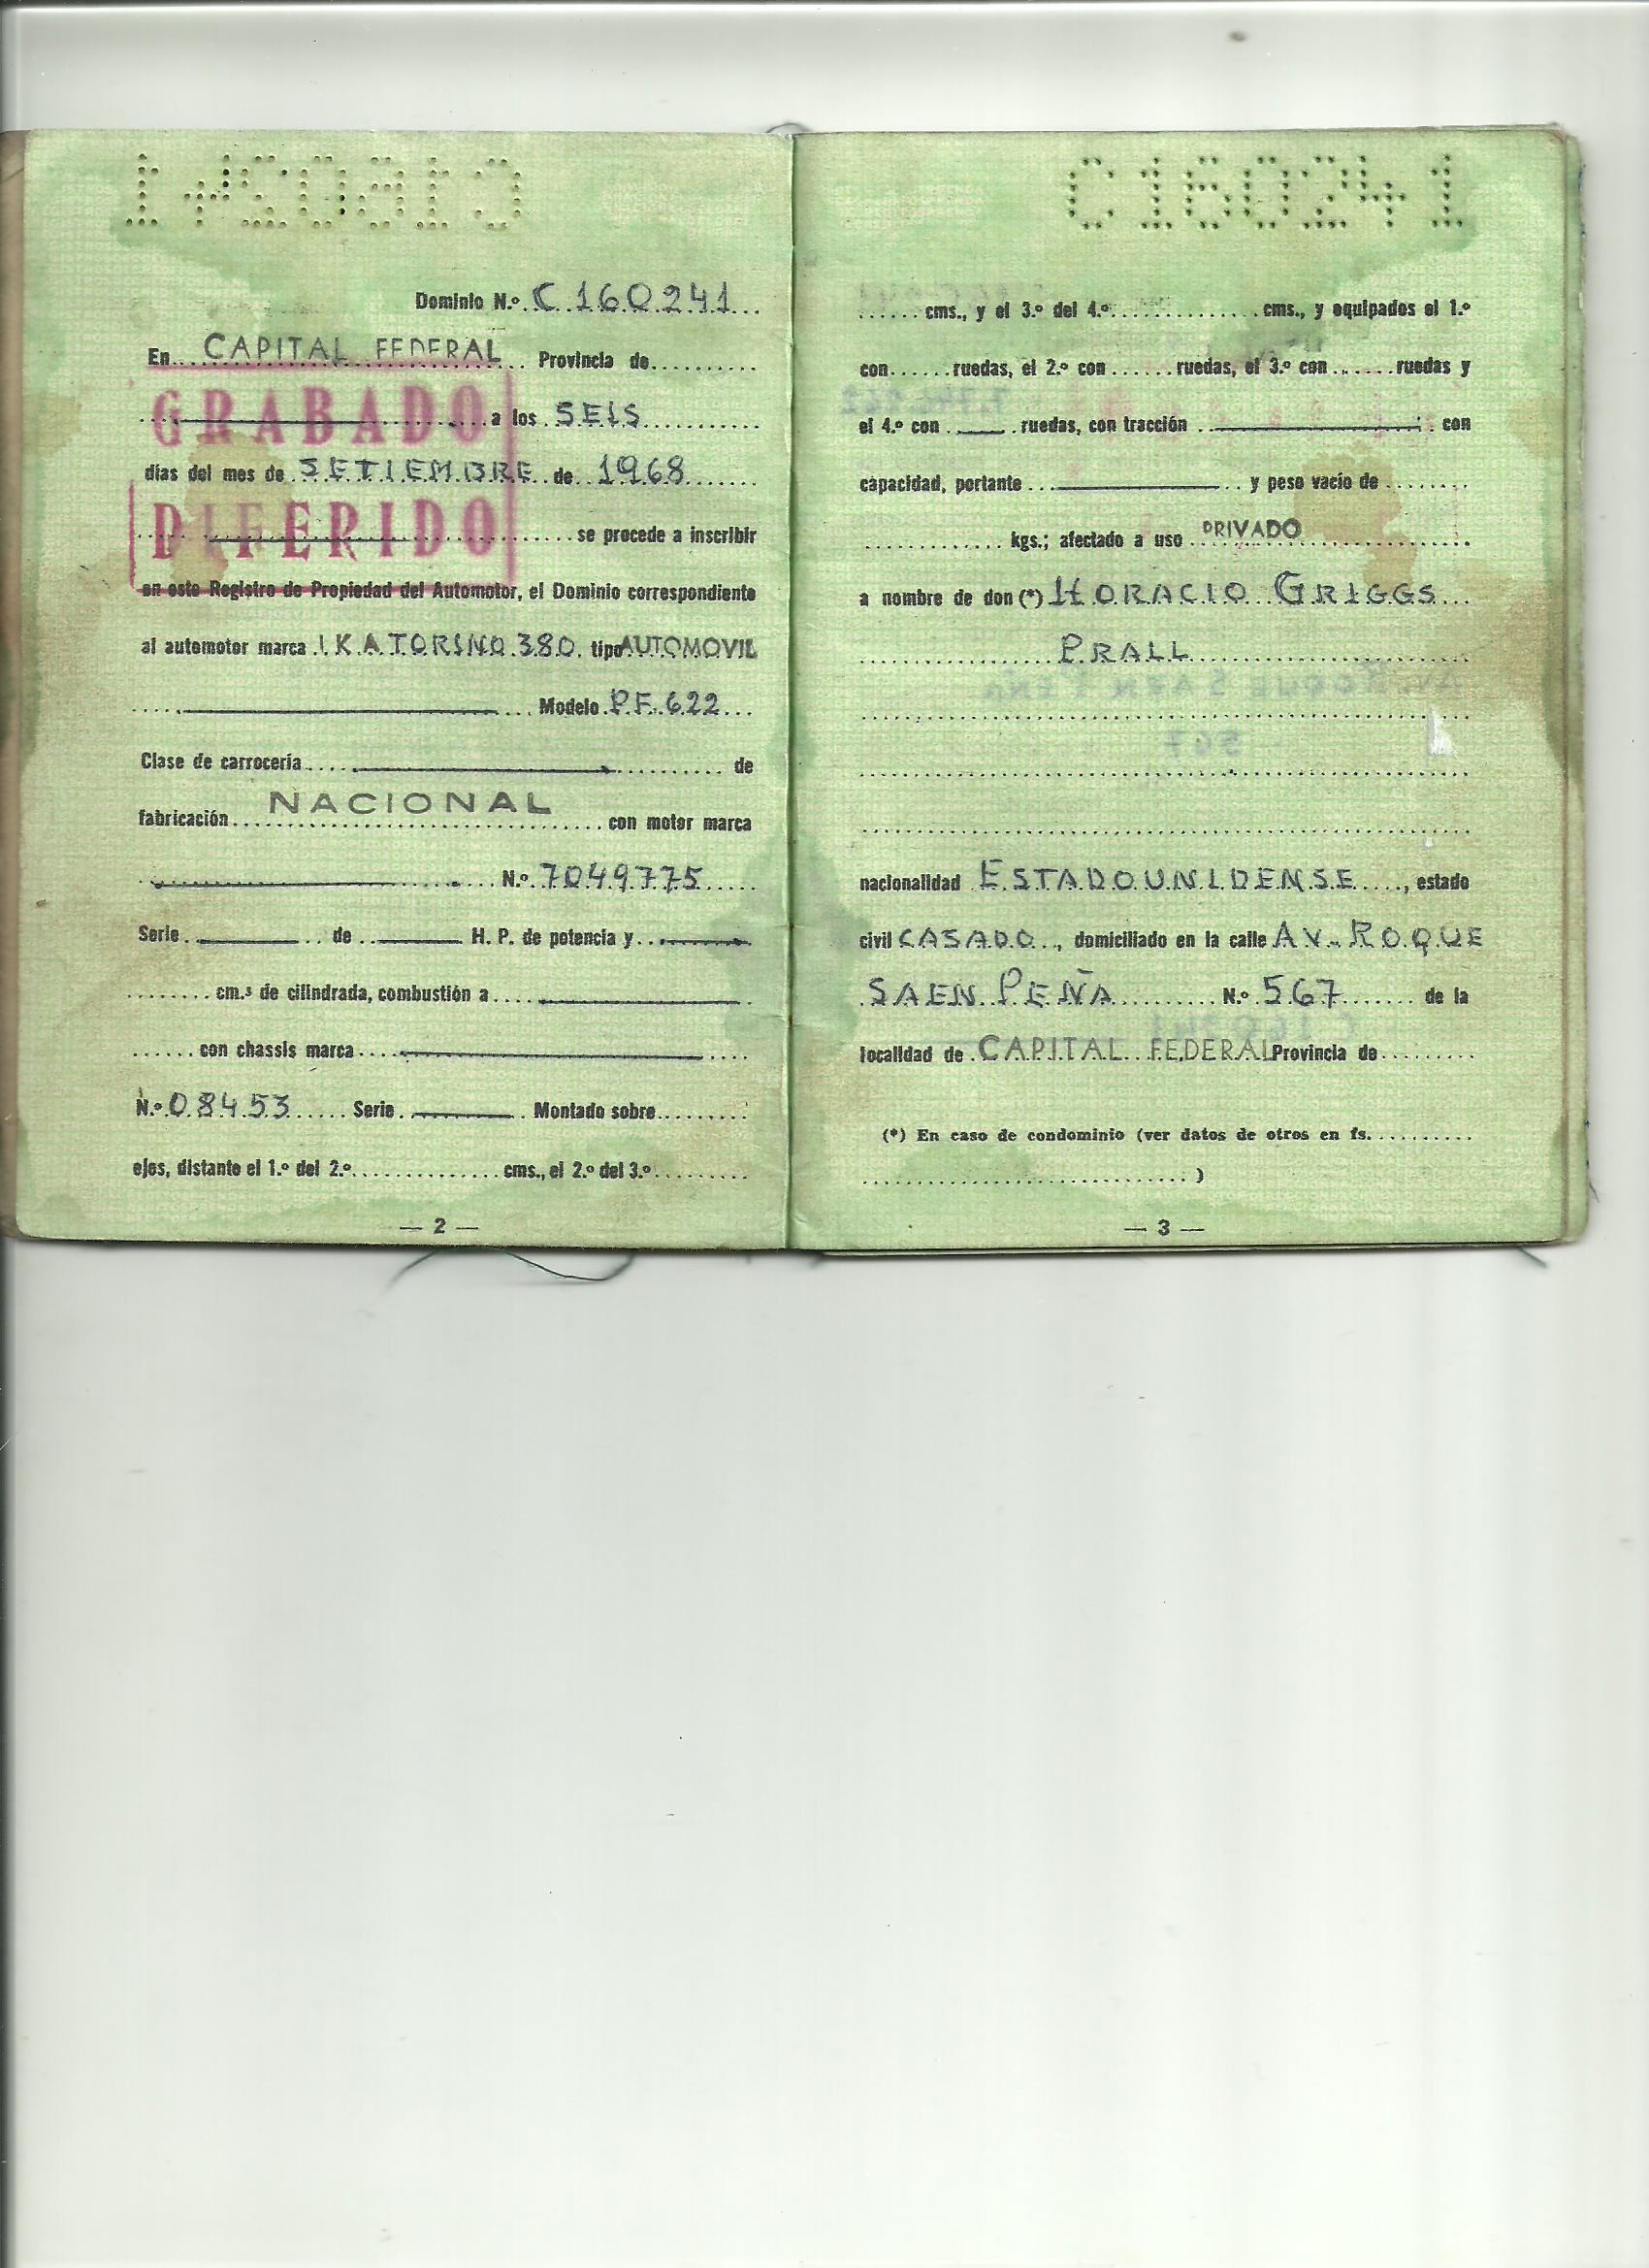 C160241
Dominio N.º C160241
En CAPITAL FEDERAL Provincia de
GRABADO
a los SEIS
días del mes de SETIEMBRE de 1968
DIFERIDO
se procede a inscribir
en este Registro de Propiedad del Automotor, el Dominio correspondiente
al automotor marca I.K.A TORINO 380. tipo AUTOMOVIL
Modelo P.F. 622
Clase de carrocería de
fabricación NACIONAL con motor marca
N.º 7049775
Serie de H. P. de potencia y
cm.³ de cilindrada, combustión a
con chassis marca
N.º 08453 Serie Montado sobre
ejes, distante el 1.º del 2.º cms., el 2.º del 3.º
— 2 —
C160241
cms., y el 3.º del 4.º cms., y equipados el 1.º
con ruedas, el 2.º con ruedas, el 3.º con ruedas y
el 4.º con ruedas, con tracción con
capacidad, portante y peso vacío de
kgs.; afectado a uso PRIVADO
a nombre de don (*) HORACIO GRIGGS
PRALL
nacionalidad ESTADOUNIDENSE, estado
civil CASADO, domiciliado en la calle AV. ROQUE
SAEN PEÑA N.º 567 de la
localidad de CAPITAL FEDERAL Provincia de
(*) En caso de condominio (ver datos de otros en fs.
)
— 3 —